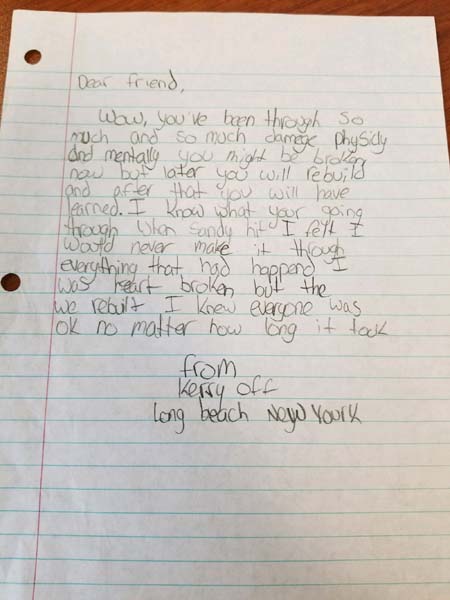 Dear friend,
Wow, you've been through so
much and so much damage physicly
and mentally you might be broken
now but later you will rebuild
and after that you will have
learned. I know what your going
through when sandy hit I felt I
would never make it through
everything that had happend I
was heart broken but the
we rebuilt I knew everyone was
ok no matter how long it took
from
Kerry Off
long beach New Yourk